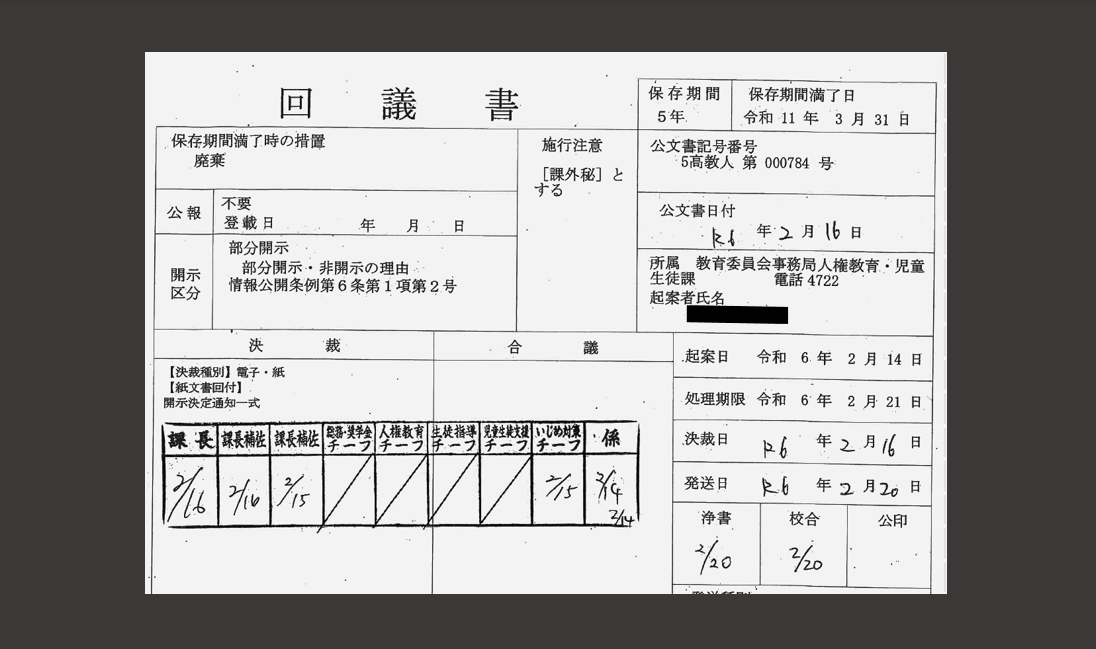 回議書
保存期間
5年
保存期間満了日
令和 11 年 3 月 31 日
保存期間満了時の措置
廃棄
施行注意
［課外秘］と
する
公文書記号番号
5高教人 第 000784 号
公報
不要
登載日 年 月 日
公文書日付
R6 年 2 月 16 日
開示
区分
部分開示
部分開示・非開示の理由
情報公開条例第6条第1項第2号
所属 教育委員会事務局人権教育・児童
生徒課 電話 4722
起案者氏名
決裁
合議
起案日 令和 6 年 2 月 14 日
【決裁種別】電子・紙
【紙文書回付】
開示決定通知一式
処理期限 令和 6 年 2 月 21 日
課長 課長補佐 課長補佐 総務・奨学金チーフ 人権教育チーフ 生徒指導チーフ 児童生徒支援チーフ いじめ対策チーフ 係
2/16 2/16 2/15 2/15 2/14
2/14
決裁日 R6 年 2 月 16 日
発送日 R6 年 2 月 20 日
浄書 校合 公印
2/20 2/20